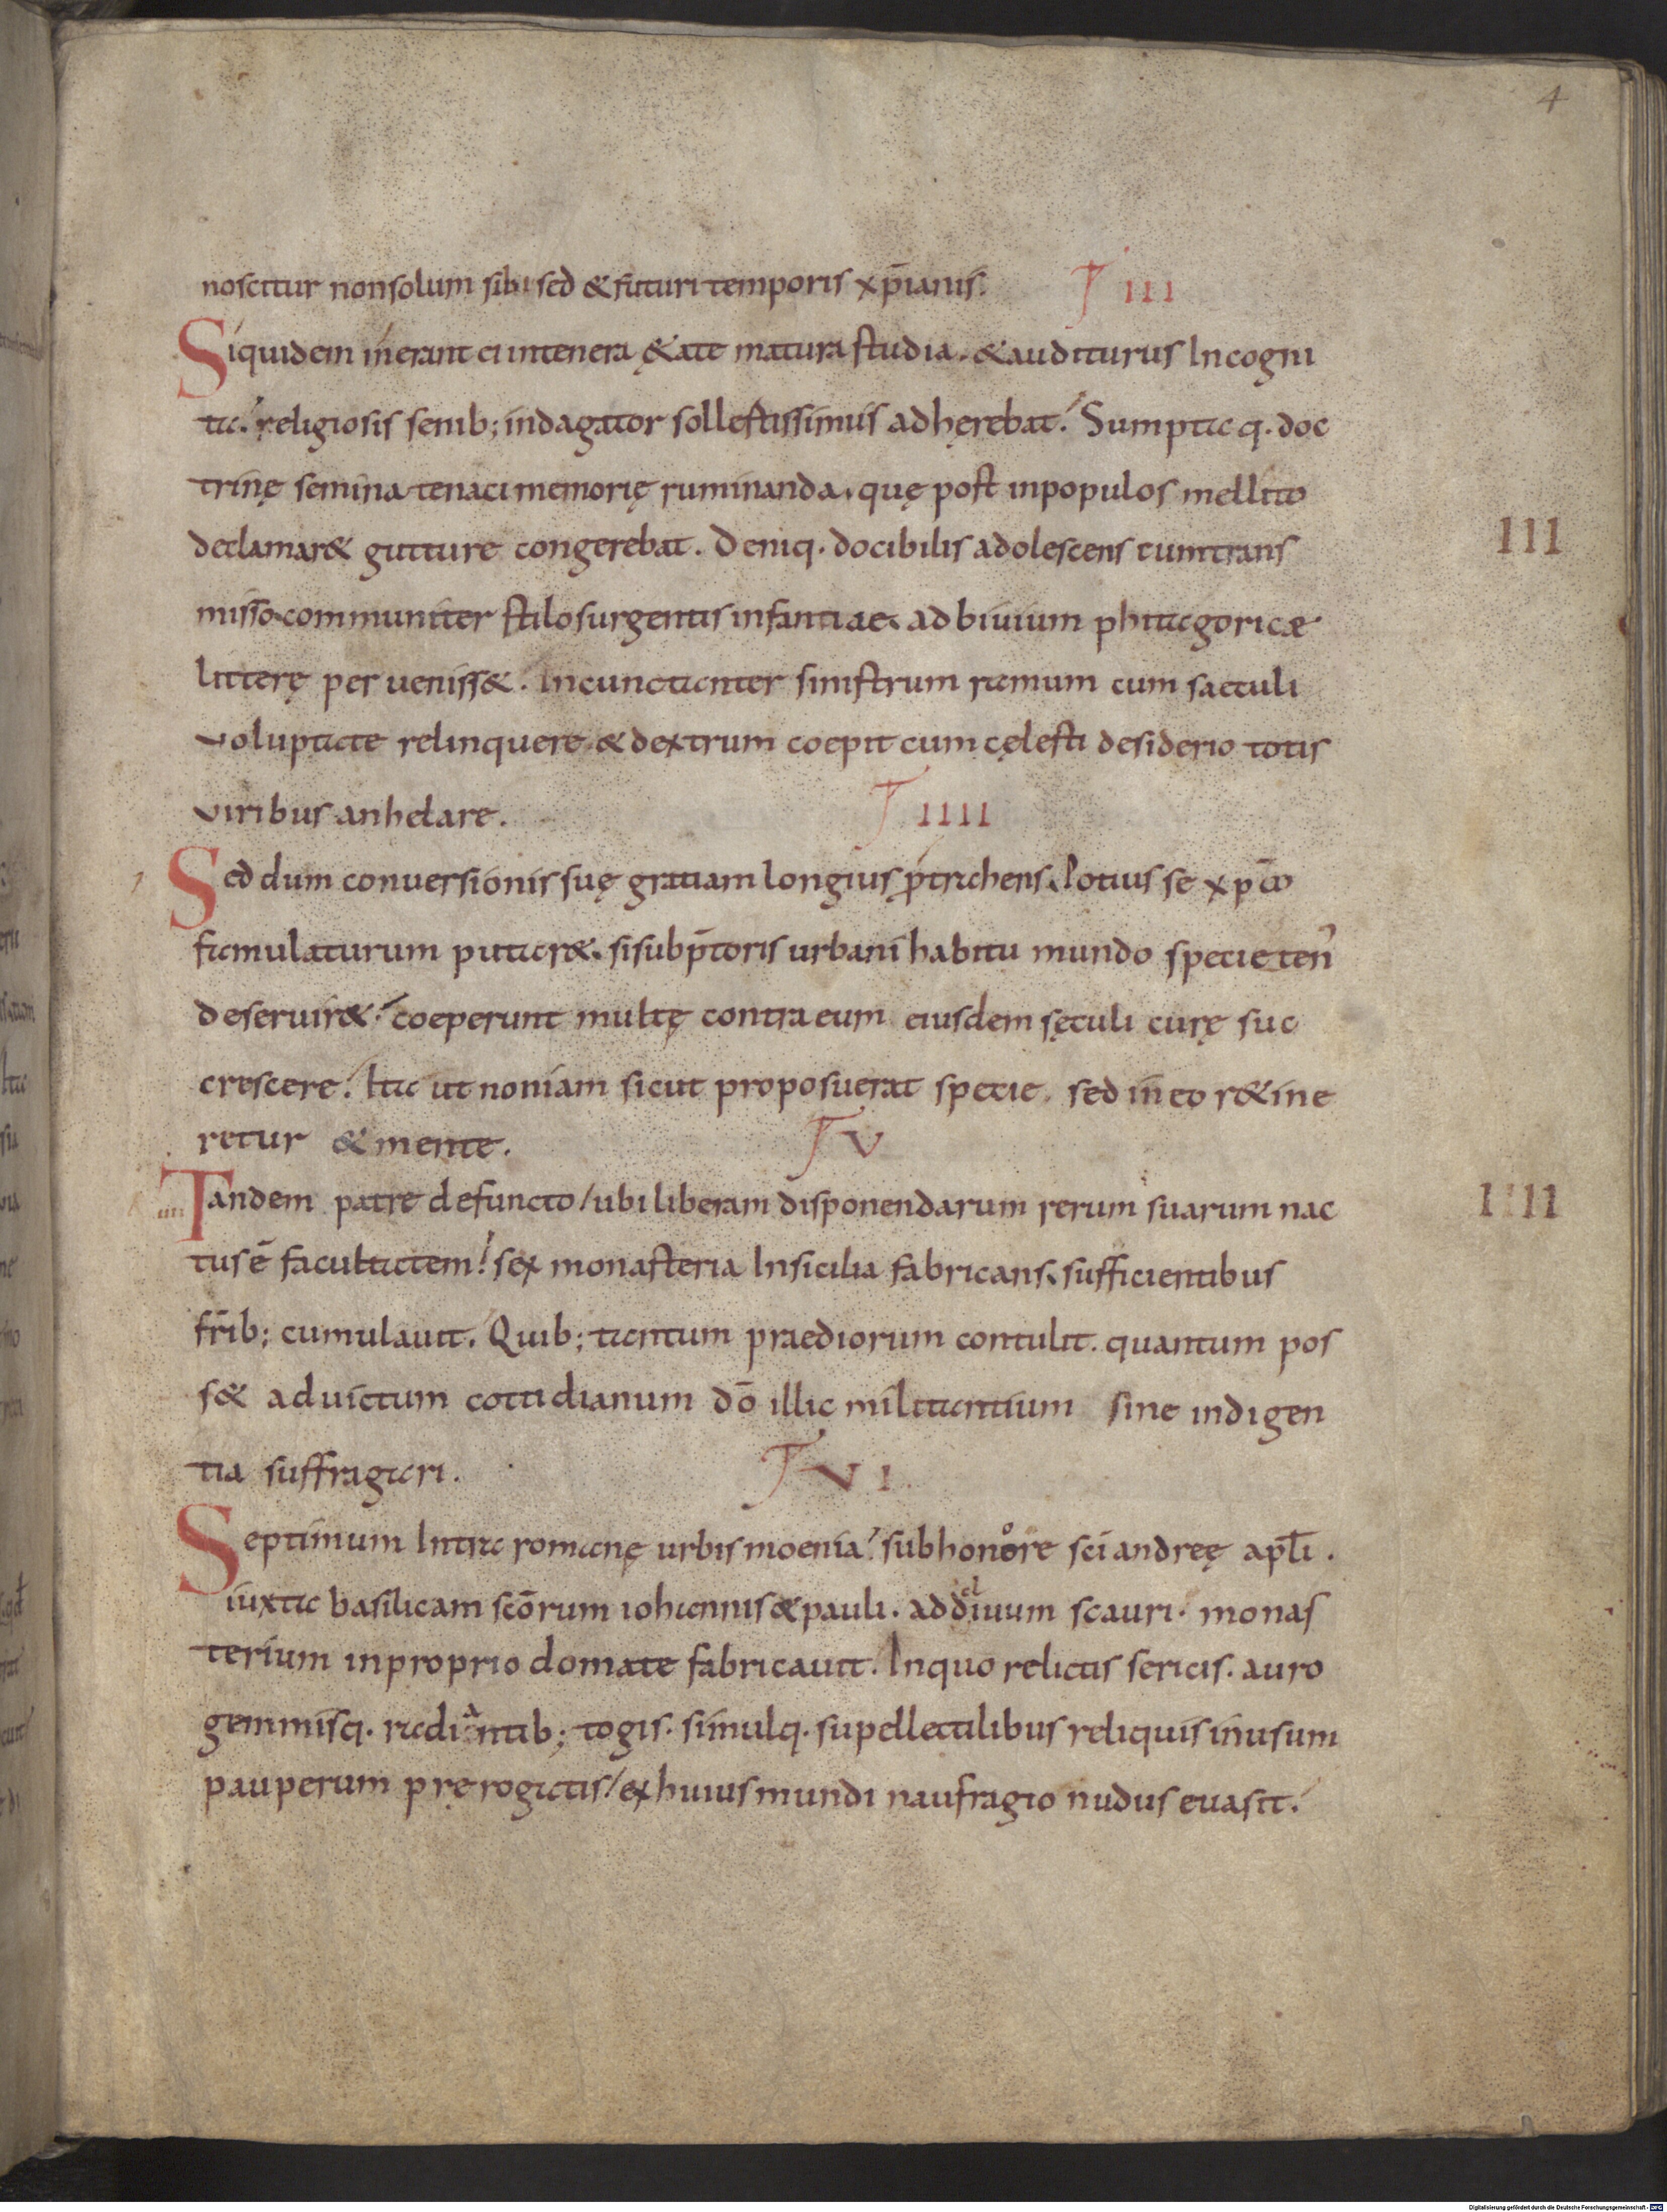 4
noscitur non solum sibi sed & futuri temporis xp̄ianis. T III
Siquidem inerant ei intenera &ate matura studia. & auditurus Incogni
ta. religiosis senib; indagator sollestissimus adhęrebat. Sumpta q. doc
trinę semina tenaci memorię ruminanda, quę post inpopulos mellito
declamar& gutture congerebat. Deniq. docibilis adolescens cumtrans
III
misso communiter stilo surgentis infantiae, ad biuium phitagoricæ
litterę per ueniss&. Incunctanter sinistrum ramum cum saeculi
voluptate relinquere & dextrum coepit cum cęlesti desiderio totis
viribus anhelare. T IIII
Sed dum conuersionis suę gratiam longius ptrahens, Potius se xp̄o
famulaturum putar&. si sub p̄toris urbani habitu mundo specie ten'
deseruir&. coeperunt multę contra eum eiusdem sęculi curę suc
crescere. Ita ut non iam sicut proposuerat specie. sed in eo r&ine
retur & mente. T V
Tandem patre defuncto / ubi liberam disponendarum rerum suarum nac
IIII
tus ē facultatem! sex monasteria Insicilia fabricans, sufficientibus
fr̄ib; cumulauit. Quib; tantum praediorum contulit. quantum pos
s& ad uictum cottidianum dō illic militantium sine indigen
tia suffragari. T VI
Septimum Intra romanę urbis moenia. sub honore sc̄i andreę apl̄i.
iuxta basilicam scōrum iohannis & pauli. ad cliuum scauri. monas
terium inproprio domate fabricauit. Inquo relictis sericis. auro
gemmisq. radiantib; togis. simulq. supellectilibus reliquis inusum
pauperum pręrogatis / ex huius mundi naufragio nudus euasit.
Digitalisierung gefördert durch die Deutsche Forschungsgemeinschaft - DFG